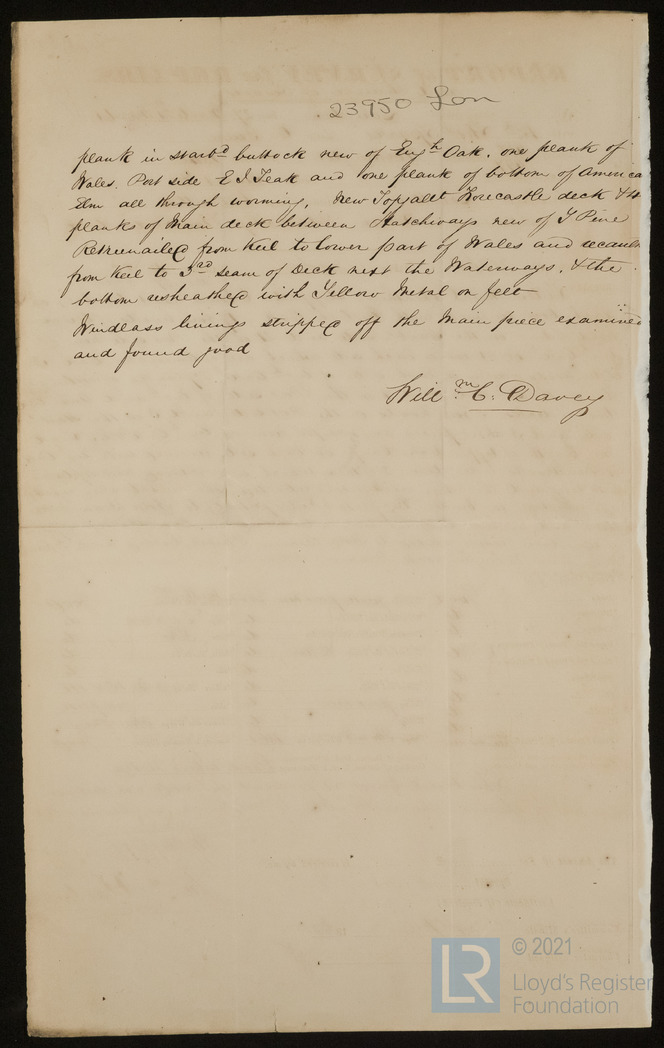 23950 Lon
plank in starbd buttock new of Engh Oak, one plank of
Wales. Port side E I Teak and one plank of bottom of America
Elm all through worming, New Topgallt Forecastle deck & 4
planks of Main deck between Hatchways new of Y Pine
Retreenailed from Keel to lower part of Wales and recaulk
from Keel to 3rd seam of Deck next the Waterways, & the
bottom resheathed with Yellow Metal on felt
Windlass linings stripped off the Main piece examined
and found good
Willm C. Davey
© 2021
LR
Lloyd's Register
Foundation